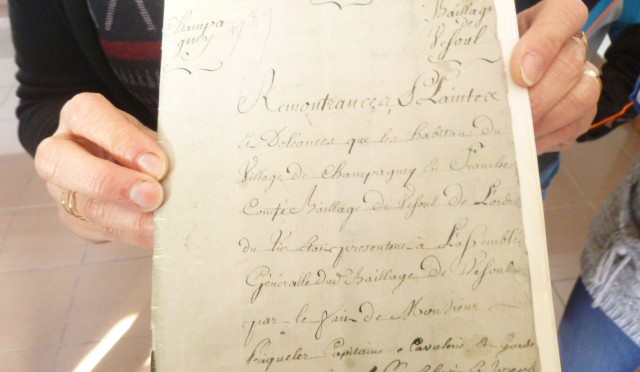 Champa
gney
1789
Baillage
de
Vesoul
Remontrances Plaintes
et Doléances que les habitans du
Village de Champagney en Franche
Comté Baillage de Vesoul de L'ordre
du tier Etat presentent à L'assemblée
Généralle dud Baillage de Vesoul
par le fait de Monsieur
Priqueler Capitaine de Cavalerie